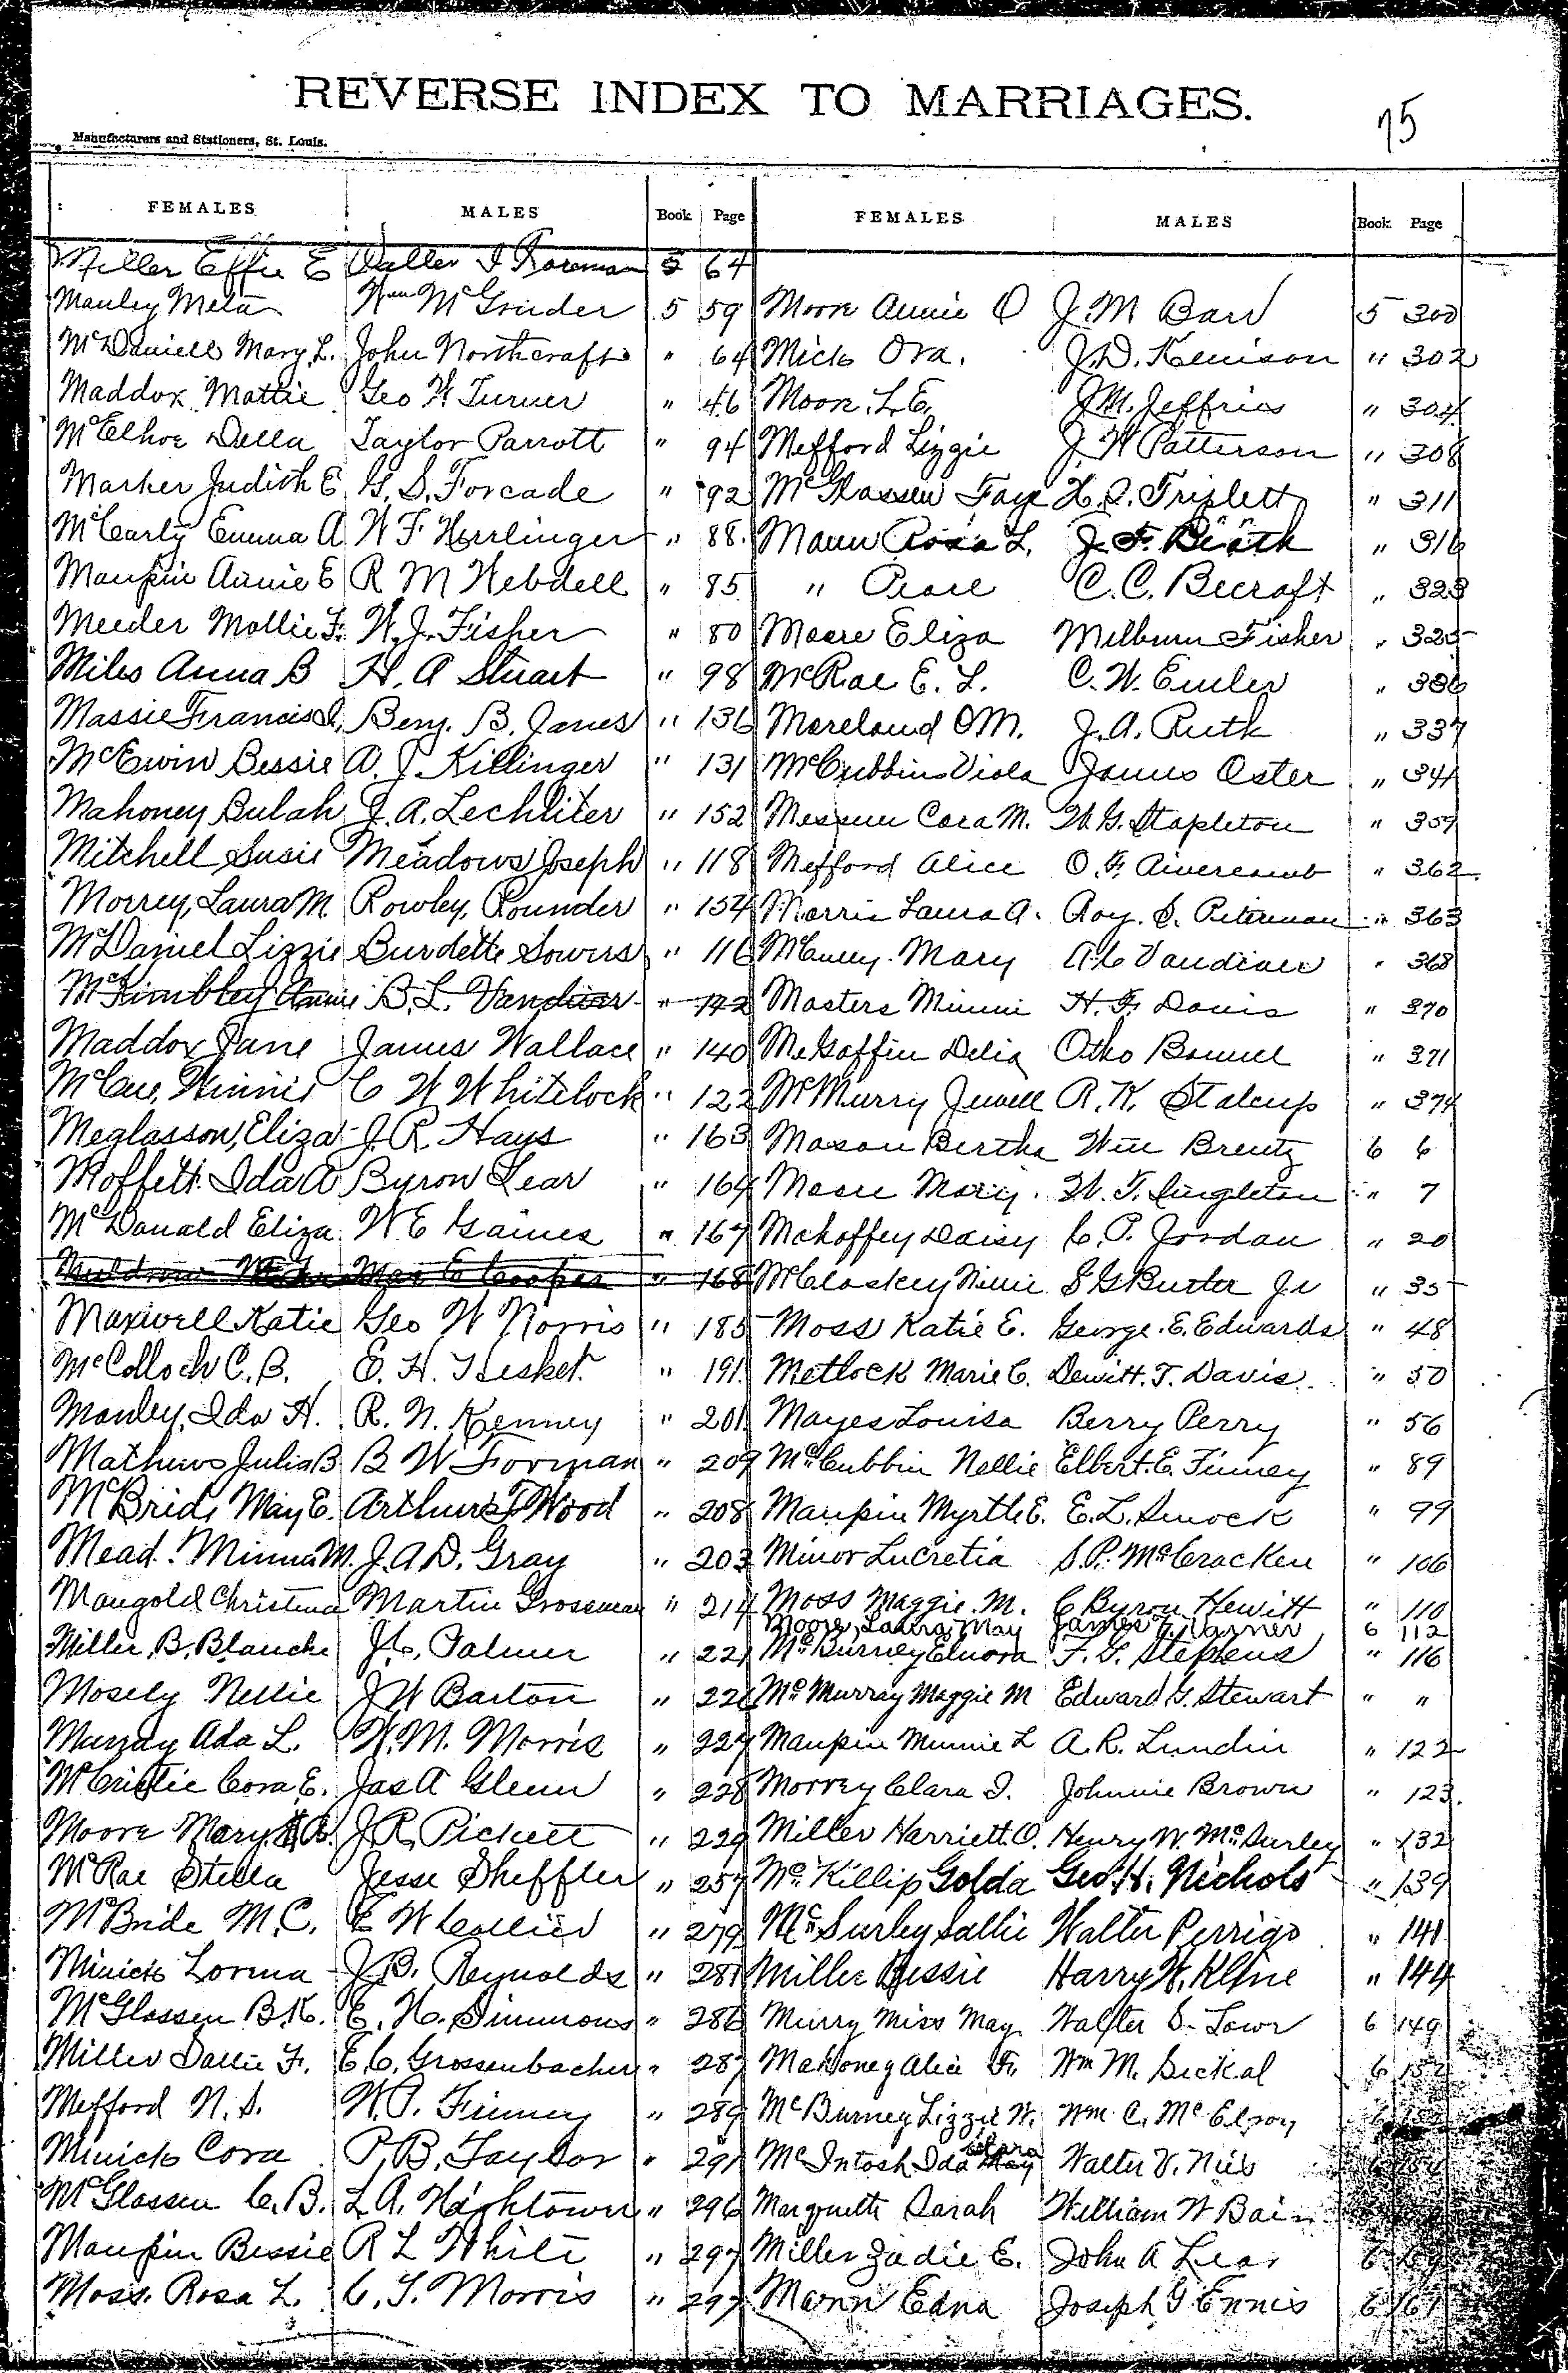 REVERSE INDEX TO MARRIAGES.
75
Manufacturers and Stationers, St. Louis.
FEMALES MALES Book Page FEMALES MALES Book Page
Miller Effie E Walter I Foreman 5 64
Manley Meta Wm McGruder 5 59 Moore Annie O J. M Barr 5 300
McDaniell Mary L. John Northcraft " 64 Mick Ora. J. D. Kenison " 302
Maddox Mattie Geo W Turner " 46 Moon L. E. J. M. Jeffries " 304
McElhoe Della Taylor Parrott " 94 Mefford Lizzie J. W Patterson " 308
Marker Judith E G. S. Forcade " 92 McGlassen Faye H. S. Triplett " 311
McCarty Emma A W F Herrlinger " 88. Mann Rosa L. J. F. " 316
Maupin Annie E R M Webdell " 85 " Pearl C. C. Becraft " 323
Meeder Mollie F. W. J. Fisher " 80 Moore Eliza Melburn Fisher " 325
Miles Anna B H. A Stuart " 98 McRae E. L. C. W. Euler " 336
Massie Francis I. Benj. B. Janes " 136 Moreland O M. J. A. Ruth " 337
McEwin Bessie A. J. Killinger " 131 McCubbins Viola James Oster " 341
Mahoney Bulah J. A. Lechliter " 152 Messner Cora M. W. G. Stapleton " 359
Mitchell Susie Meadows Joseph " 118 Mefford Alice O. F. " 362
Morrey, Laura M. Rowley, Rounder " 154 Morris Laura A. Roy. S. Peterman " 363
McDaniel Lizzie Burdette Sowers " 116 Mary A. C Vandiver " 368
McKimbley Annie B. L. Vandiver " 142 Masters Minnie H. F. Davis " 370
Maddox Jane James Wallace " 140 McGaffin Delia Otho Bonnel " 371
McCue, Winnie C W Whitelock " 122 McMurry Jewell R. K. Stalcup " 374
Meglasson, Eliza J. R. Hays " 163 Mason Bertha Wm Brentz 6 6
Moffett. Ida A Byron Lear " 164 Moore Mary. W. T. Singleton " 7
McDonald Eliza. W E Gaines " 167 Mchaffey Daisy C. P. Jordan " 20
Muldrow Max C Cooper " 168 McCloskey Ninie S G Butler Jr " 35
Maxwell Katie Geo W Norris " 185 Moss Katie E. George. E. Edwards " 48
McColloch C. B. E. H. Hesket. " 191 Metlock Marie C. Dewitt. T. Davis. " 50
Manley, Ida H. R. N. Kenney " 201 Mayes Louisa Berry Perry " 56
Mathews Julia B B W Forman " 209 McCubbin Nellie Elbert. E. Finney " 89
McBride May E. Arthur T Wood " 208 Maupin Myrtle E. E. L. Smock " 99
Mead. Minna M. J. A. D. Gray " 203 Minor Lucretia S. P. McCracken " 106
Mangold Christina Martin Grossman " 214 Moss Maggie. M. C Byron Hewitt " 110
Moore, Laura May James T. Varner 6 112
Miller, B. Blanche J. C. Palmer " 221 McBurney Elnora F. G. Stephens " 116
Mosely Nellie J W Barton " 226 McMurray Maggie M Edward G. Stewart " "
Murray Ada L. W. M. Morris " 227 Maupin Minnie L A. R. Lundin " 122
McCristie Cora E. Jas A Glenn " 228 Morrey Clara I. Johnnie Brown " 123.
Moore Mary A. J. R. Pickett " 229 Miller Harriett. O. Henry W. McSurley " 132
McRae Stella Jesse Sheffler " 257 McKillip Golda Geo. H. Nichols " 139
McBride M. C. E W Collier " 279 McSurley Sallie Walter Perrigo " 141
Minick Lorma J. B. Reynolds " 281 Miller Bessie Harry W. Kline " 144
McGlassen B. K. E. H. Simmons " 286 Murry Miss May Walter S. Lowr 6 149
Miller Dallie F. E. C. Grossenbacher " 287 Mahoney Alice F. Wm M. Sickal 6 152
Mefford N. S. W. P. Finney " 289 McBurney Lizzie W. Wm. C. McElroy
Minick Cora P. B. Taylor " 291 McIntosh Ida Clara May Walter V. Nies
McGlassen C. B. L A. Hightower " 296 Marquette Sarah William W Bain
Maupin Bessie R L White " 297 Miller Zadie E. John A Lear 6
Moss. Rosa L. C. T. Morris " 297 Mann Edna Joseph G Ennis 6 161